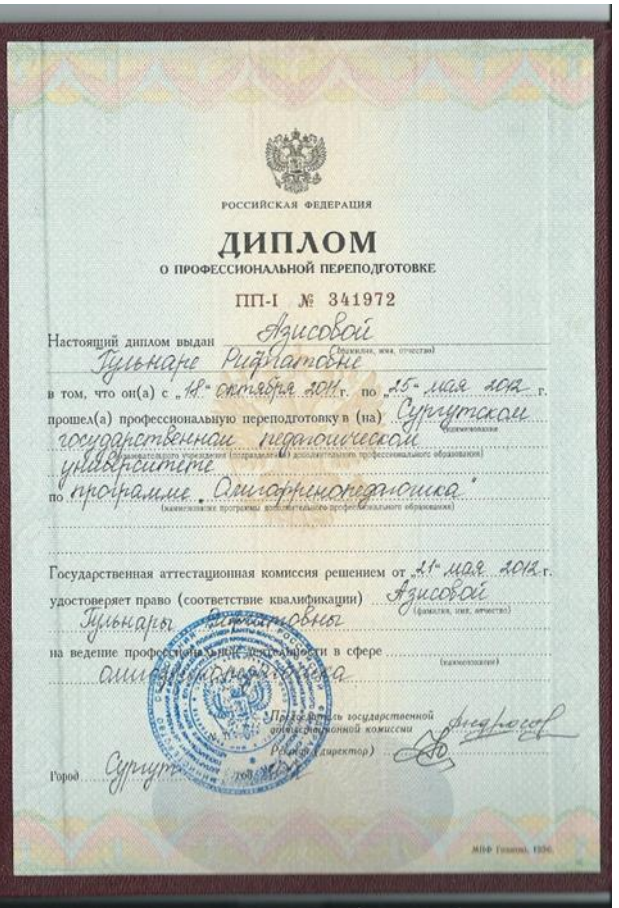 РОССИЙСКАЯ ФЕДЕРАЦИЯ
ДИПЛОМ
О ПРОФЕССИОНАЛЬНОЙ ПЕРЕПОДГОТОВКЕ
ПП-I № 341972
Настоящий диплом выдан Азисовой
(фамилия, имя, отчество)
Гульнаре Рифгатовне
в том, что он(а) с „18“ октября 2011 г. по „25“ мая 2012 г.
прошел(а) профессиональную переподготовку в (на) Сургутском
(наименование
государственном педагогическом
образовательного учреждения (подразделения) дополнительного профессионального образования)
университете
по программе „Олигофренопедагогика“
(наименование программы дополнительного профессионального образования)
Государственная аттестационная комиссия решением от „21“ мая 2012 г.
удостоверяет право (соответствие квалификации) Азисовой
(фамилия, имя, отчество)
Гульнары
на ведение профессиональной деятельности в сфере
(наименование)
олигофренопедагогика
Председатель государственной
аттестационной комиссии
Ректор (директор)
Город Сургут год